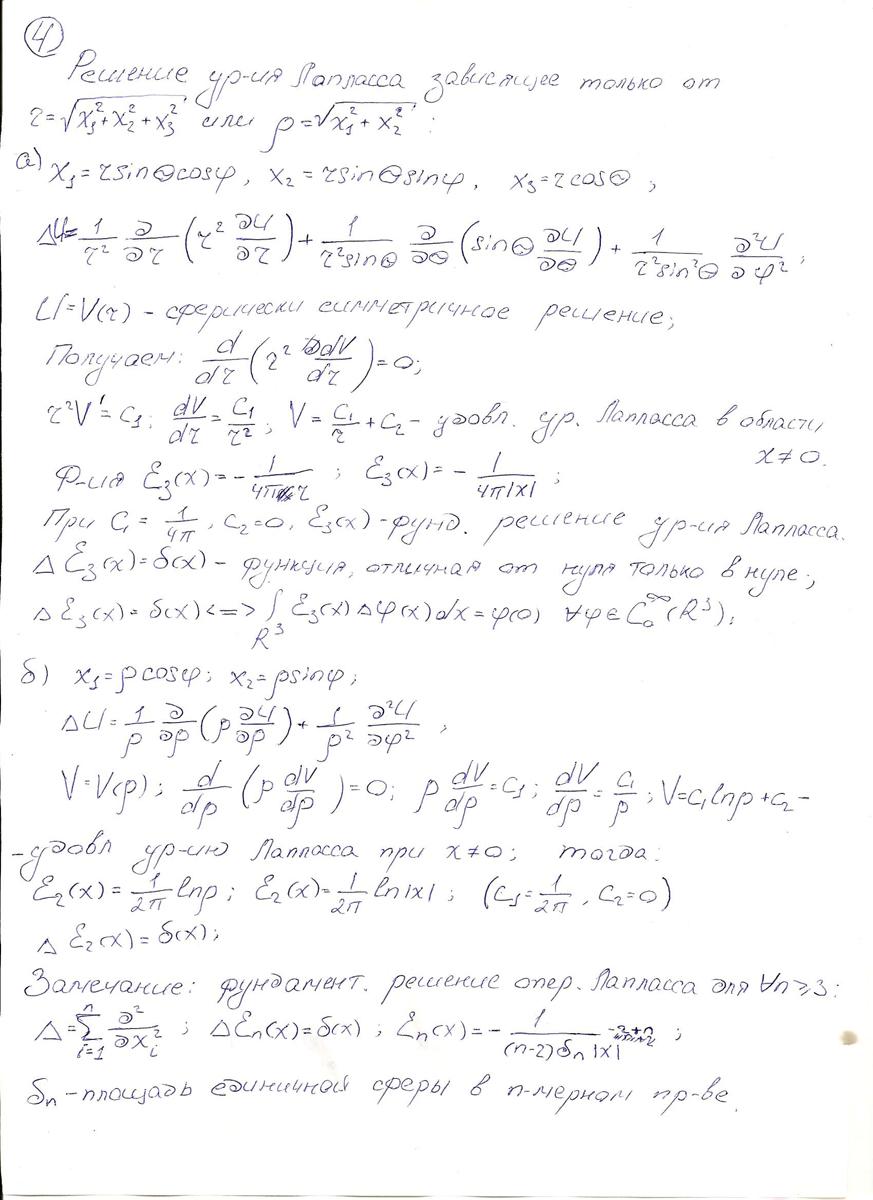 4
Решение ур-ия Лапласса зависящее только от
r=√(x₁²+x₂²+x₃²) или ρ=√(x₁²+x₂²) :
а) x₁=r sinθcosφ, x₂=r sinθsinφ, x₃=r cosθ ;
ΔU= 1/r² ∂/∂r (r² ∂U/∂r) + 1/(r²sinθ) ∂/∂θ (sinθ ∂U/∂θ) + 1/(r²sin²θ) ∂²U/∂φ² ;
U=V(r) - сферически симметричное решение;
Получаем: d/dr (r² dV/dr)=0;
r²V'=C₁; dV/dr = C₁/r² ; V= C₁/r +C₂ - удовл. ур. Лапласса в области
x≠0.
Ф-ия Ɛ₃(x)=- 1/(4πr) ; Ɛ₃(x)=- 1/(4π|x|) ;
При C₁= 1/4π, C₂=0, Ɛ₃(x)-фунд. решение ур-ия Лапласса.
Δ Ɛ₃(x)=δ(x) - функция, отличная от нуля только в нуле;
Δ Ɛ₃(x)=δ(x) <=> ∫_R³ Ɛ₃(x)Δφ(x)dx=φ(0) ∀φ∈C₀^∞(R³);
б) x₁=ρcosφ; x₂=ρsinφ;
ΔU= 1/ρ ∂/∂ρ (ρ ∂U/∂ρ)+ 1/ρ² ∂²U/∂φ² ,
V=V(ρ); d/dρ (ρ dV/dρ)=0; ρ dV/dρ =C₁; dV/dρ = C₁/ρ ; V=C₁lnρ+C₂ -
- удовл ур-ию Лапласса при x≠0; тогда:
Ɛ₂(x)= 1/2π lnρ; Ɛ₂(x)= 1/2π ln|x|; (C₁= 1/2π, C₂=0)
Δ Ɛ₂(x)=δ(x);
Замечание: фундамент. решение опер. Лапласса для ∀n≥3:
Δ=∑_{i=1}^n ∂²/∂x_i² ; ΔƐn(x)=δ(x) ; Ɛn(x)=- 1/((n-2)δn|x|^{-2+n}) ;
δn - площадь единичной сферы в n-мерном пр-ве.